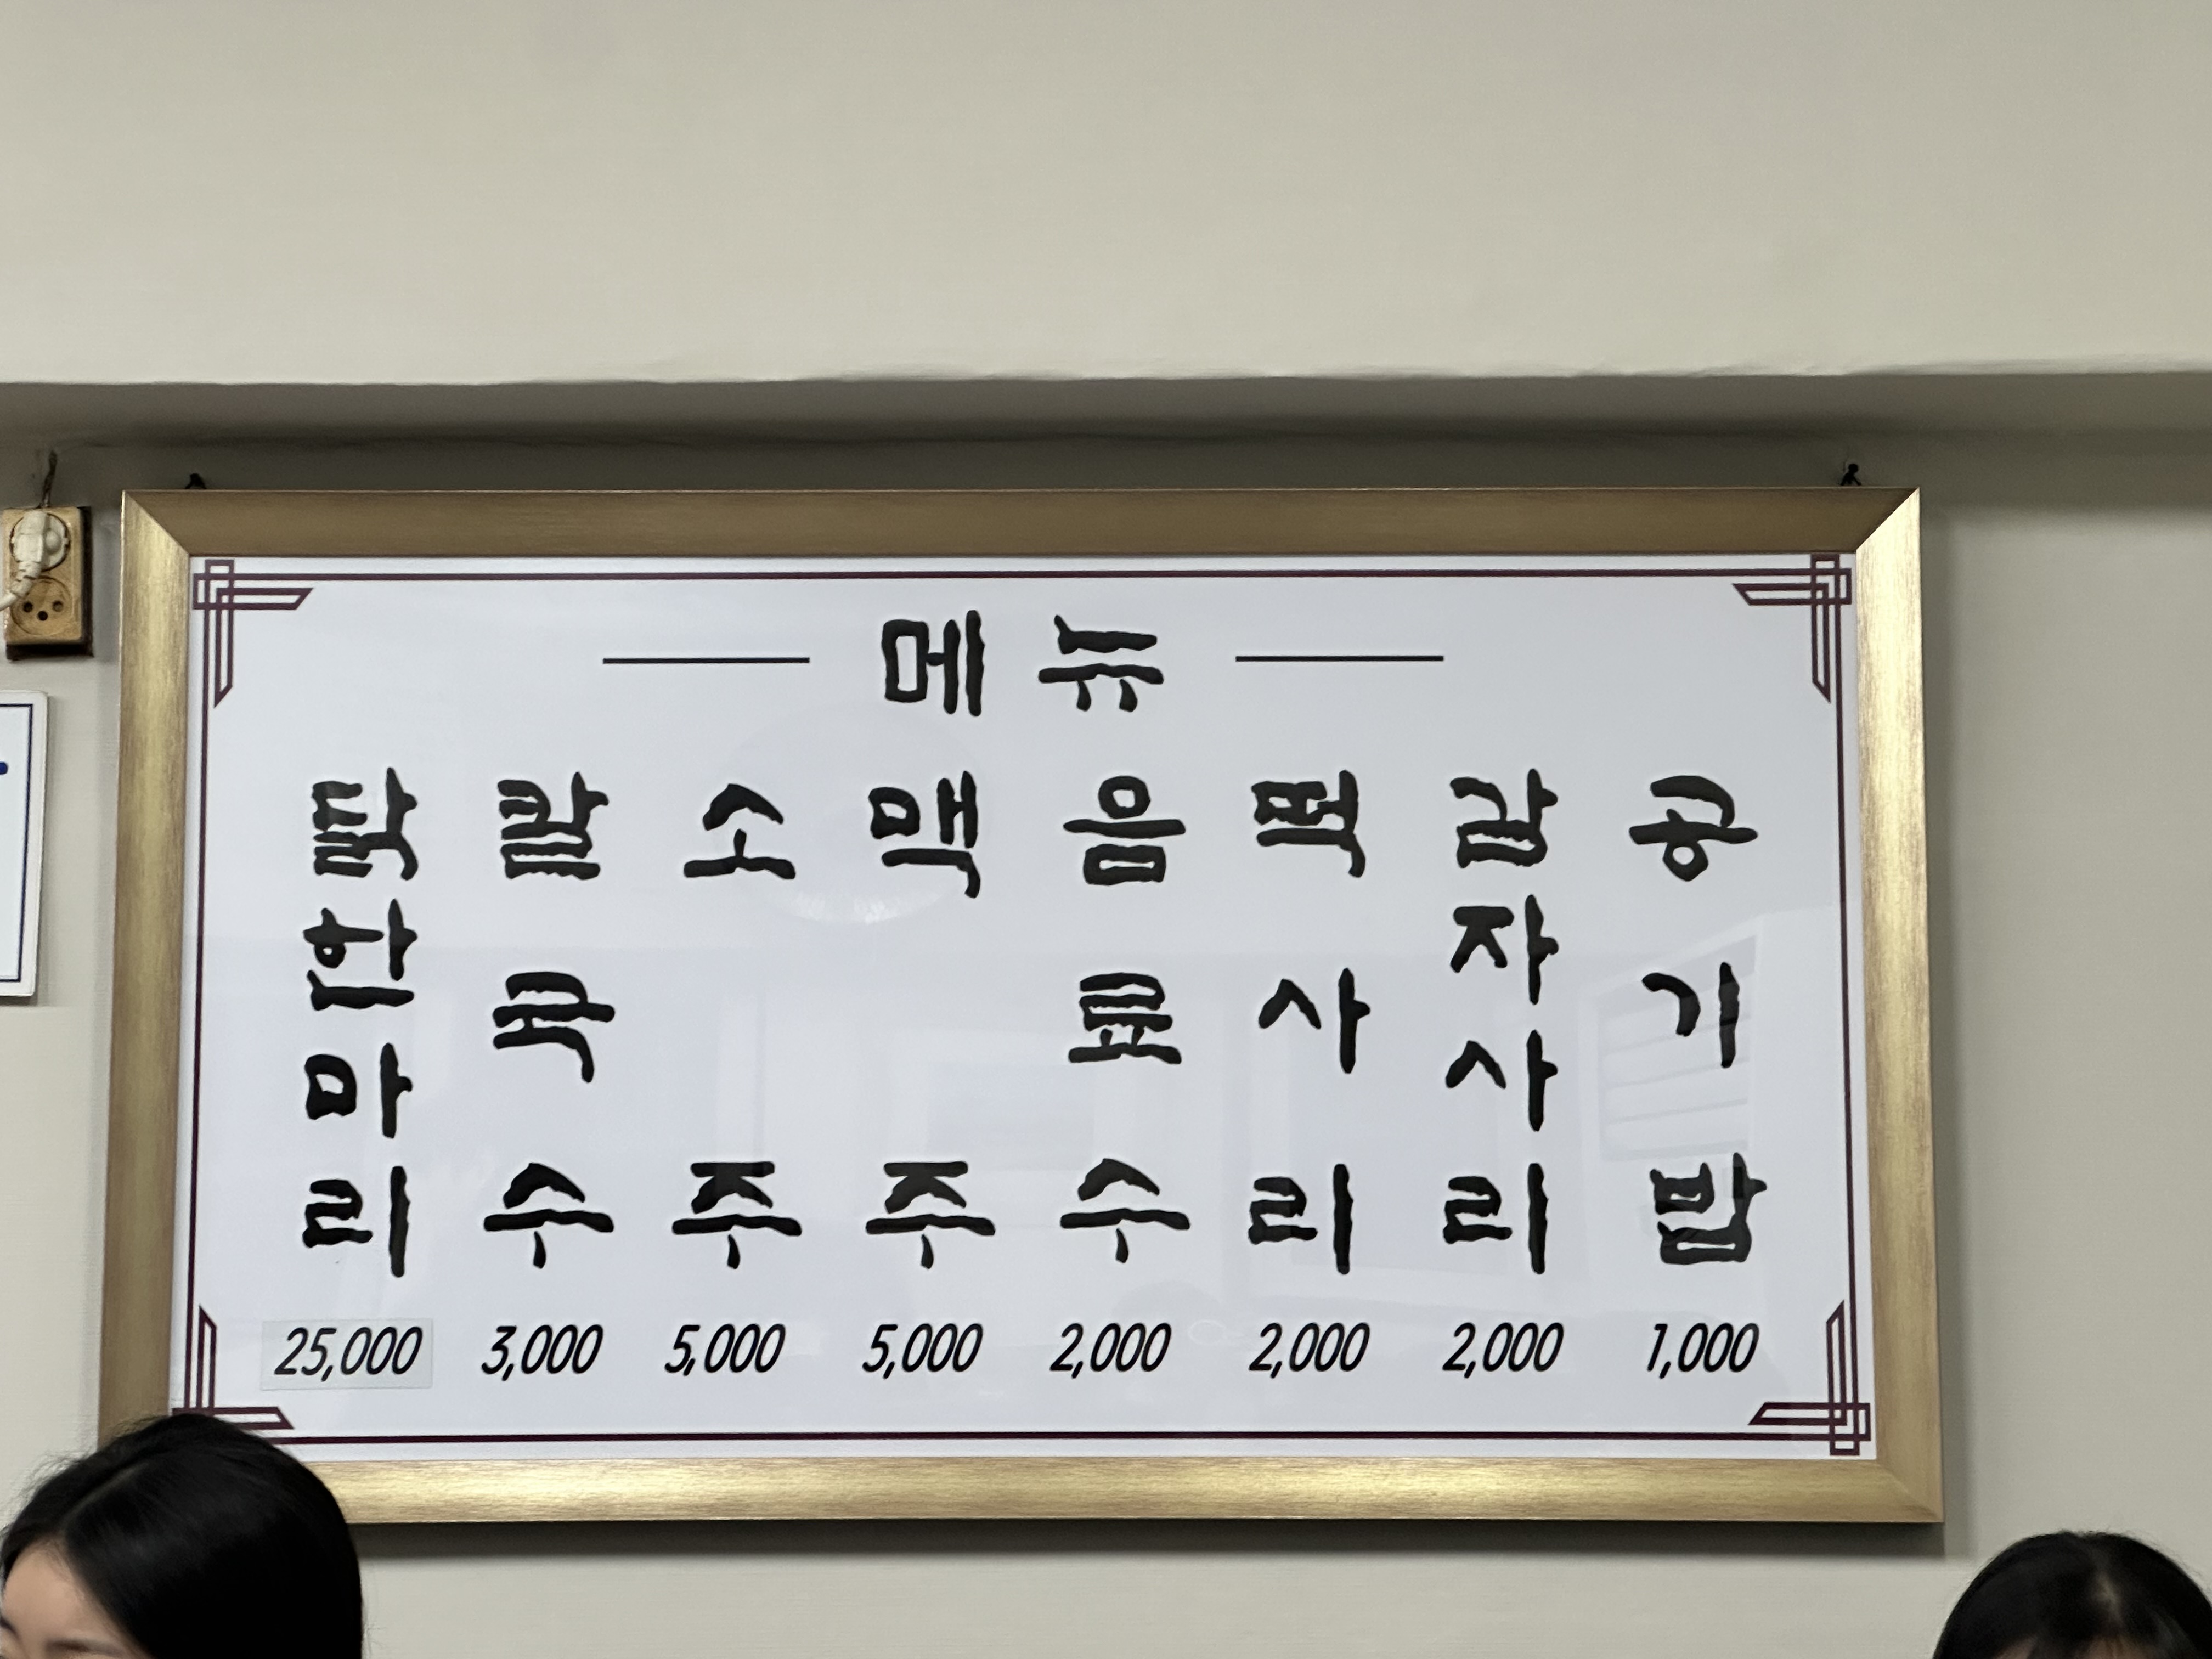 메뉴
닭한마리 25,000
칼국수 3,000
소주 5,000
맥주 5,000
음료수 2,000
떡사리 2,000
감자사리 2,000
공기밥 1,000